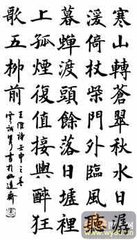 寒山轉蒼翠秋水日潺
湲倚杖柴門外臨風聽
暮蟬渡頭餘落日墟里
上孤煙復值接輿醉狂
歌五柳前
王維詩壬申之春